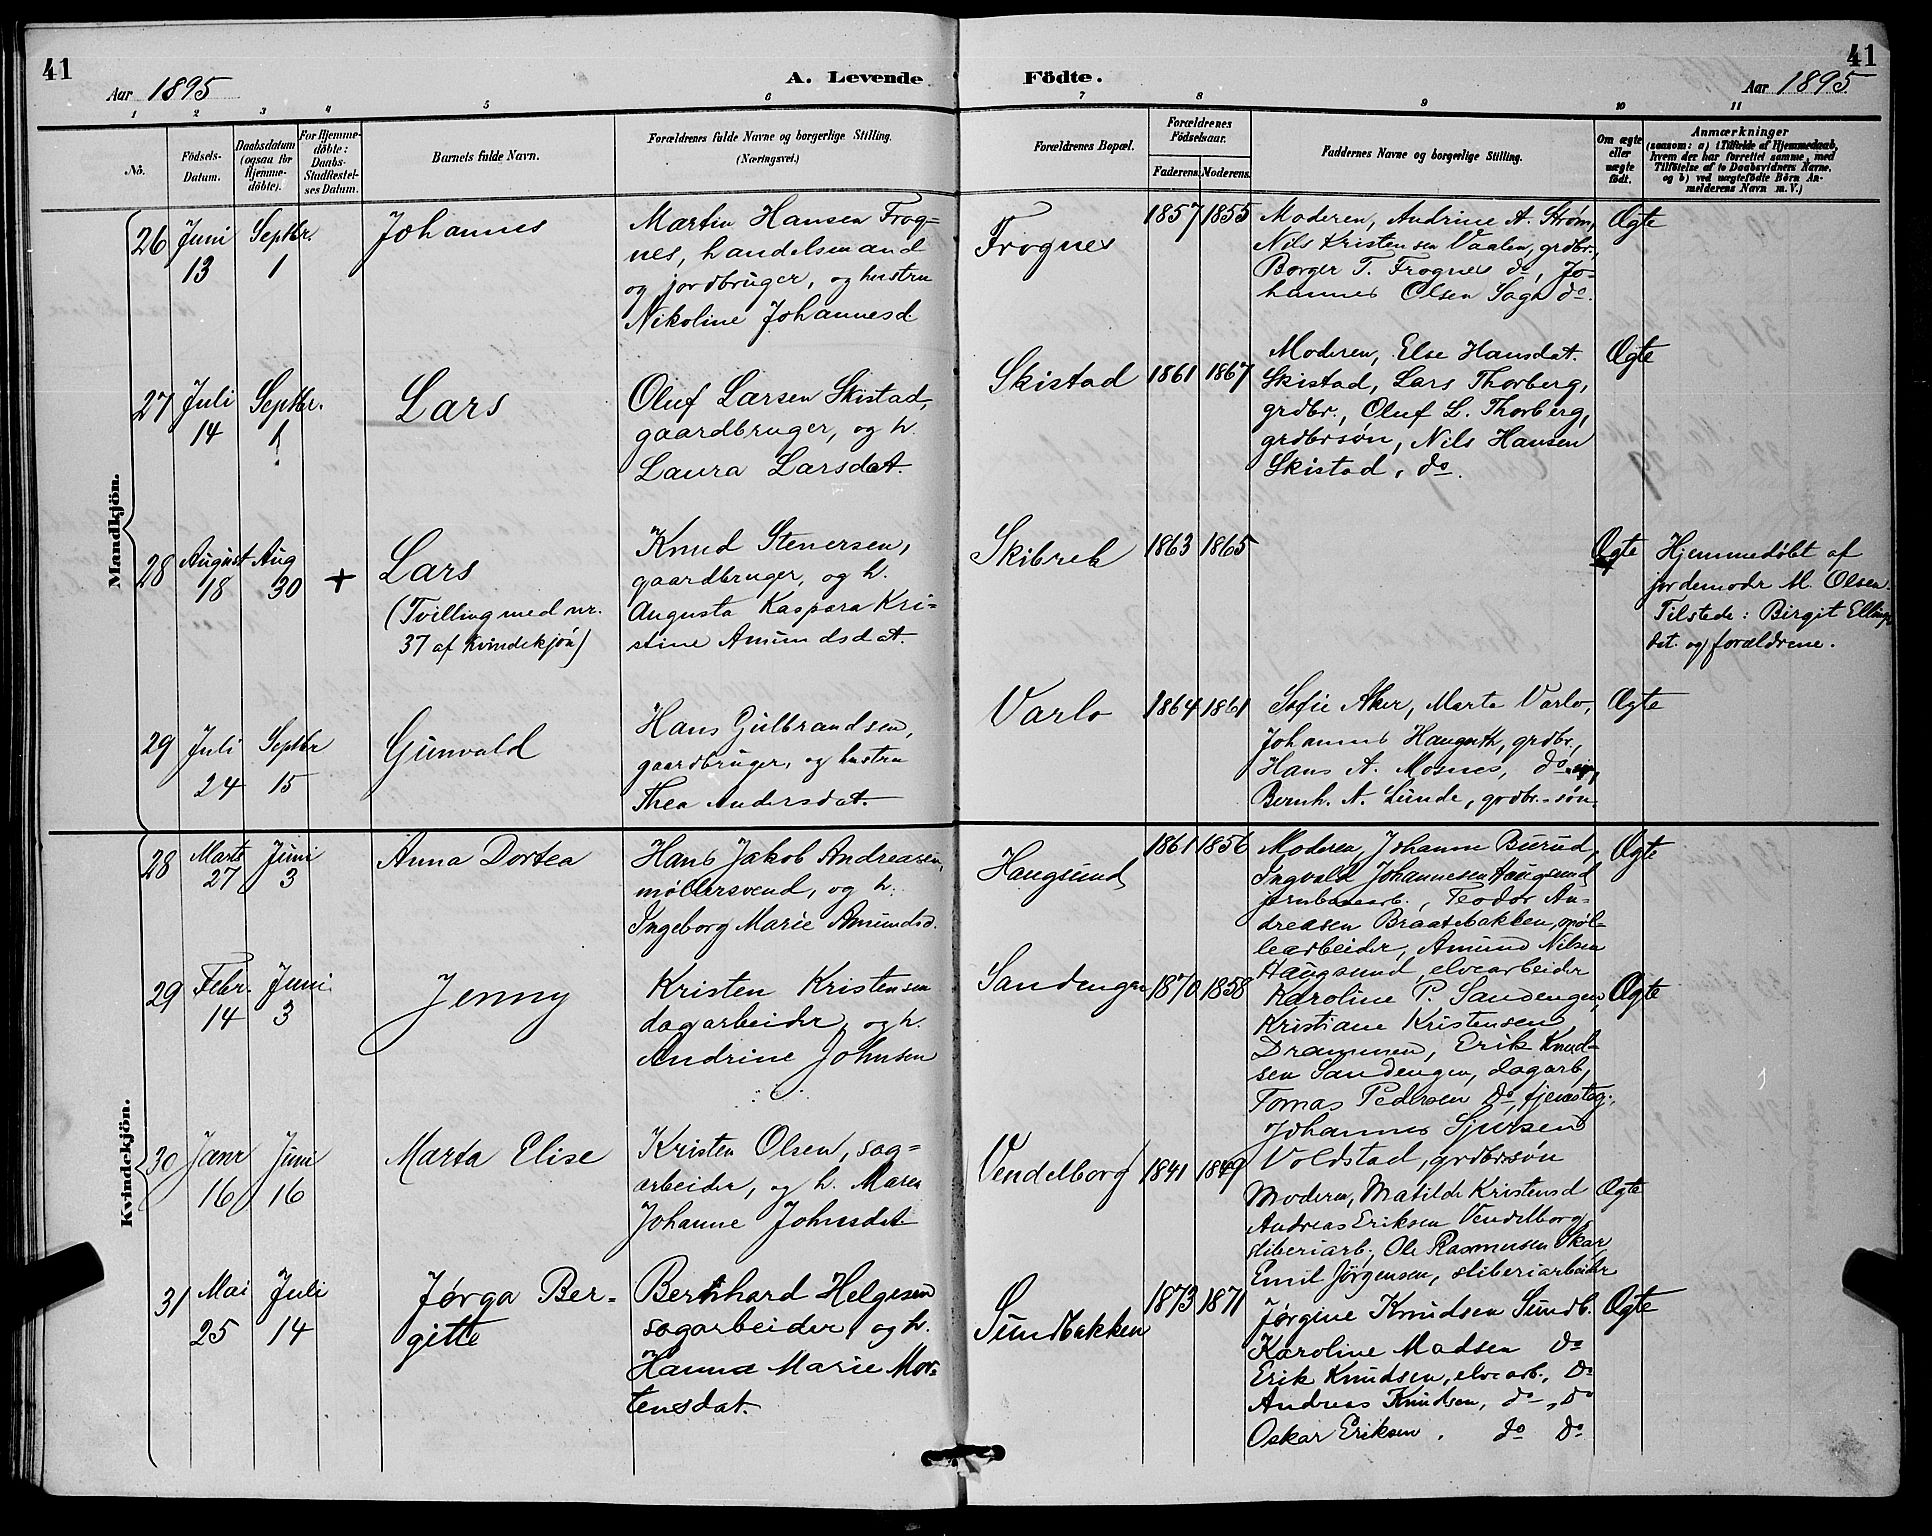 41
Aar 1895
A. Levende
Födte.
Aar 1895
41
1
2
3
4
5
6
7
8
9
10
11
No.
Födsels-
Datum.
Daabsdatum
(ogsaa for
Hjemme-
döbte).
For Hjemme-
döbte:
Daabs-
Stadfæstel-
ses Datum.
Barnets fulde Navn.
Forældrenes fulde Navne og borgerlige Stilling.
(Næringsvei.)
Forældrenes Bopæl.
Forældrenes
Födselsaar.
Faderens.
Moderens.
Faddernes Navne og borgerlige Stilling.
Om ægte
eller
uægte
födt.
Anmærkninger
(saasom: a) i Tilfælde af Hjemmedaab,
hvem der har forrettet samme, med
Tilföielse af to Daabsvidners Navne,
og b) ved uægtefödte Börn An-
melderens Navn m. V.)
Mandkjön.
26
Juni
13
Septbr.
1
Johannes
Martin Hansen Frog=
nes, handelsmand
og jordbruger, og hustru
Nikoline Johannesd.
Frognes
1857
1855
Moderen, Andrine A. Strøm,
Nils Kristensen Vaalen, grdbr.,
Borger T. Frognes do, Jo-
hannes Olsen Sagh do.
Ægte
27
Juli
14
Septbr.
1
Lars
Oluf Larsen Skistad,
gaardbruger, og h.
Laura Larsdat.
Skistad
1861
1867
Moderen, Else Hansdat.
Skistad, Lars Thorberg,
grdbr., Oluf L. Thorberg,
grdbrsøn, Nils Hansen
Skistad, do.
Ægte
28
August
18
Aug
30
+
Lars
(Tvilling med nr.
37 af Kvindekjøn)
Knud Stenersen,
gaardbruger, og h.
Augusta Kaspara Kri-
stine Amundsdat.
Skibrek
1863
1865
Ægte
Hjemmedøbt af
jordemodr M. Olsen.
Tilstede: Birgit Ellings
dat. og forældrene.
29
Juli
24
Septbr
15
Gunvald
Hans Gulbrandsen,
gaardbruger, og hustru
Thea Andersdat.
Varlo
1864
1861
Sofie Aker, Marta Varlo,
Johannes Hauguth, grdbr.,
Hans A. Mosnes, do og
Bernh. A. Lunde, grdbr.-søn.
Ægte
Kvindekjön.
28
Marts
27
Juni
3
Anna Dortea
Hans Jakob Andreasen,
møllersvend, og h.
Ingeborg Marie Amundsd.
Haugsund
1861
1856
Moderen, Johanne Burud,
Ingvald Johannesen Haugsund
jernbanearb., Teodor An-
dreasen Braatebakken, møl-
learbeider, Amund Nilsen
Haugsund, elvearbeider
Ægte
29
Febr.
14
Juni
3
Jenny
Kristen Kristensen
dagarbeider, og h.
Andrine Johnsen
Sandengen
1870
1858
Karoline P. Sandengen,
Kristiane Kristensen
Drammen, Erik Knud-
sen Sandengen, dagarb,
Tomas Pedersen do, tjenesteg.,
Johannes Sjursen
Voldstad, grdbrsøn
Ægte
30
Janr
16
Juni
16
Marta Elise
Kristen Olsen, sag=
arbeider, og h. Maren
Johanne Johnsdat.
Vendelborg
1841
1849
Moderen, Matilde Kristensd
Andreas Eriksen Vendelborg,
sliberiarb., Ole Rasmussen Skar,
Emil Jörgensen, sliberiarbeider
Ægte
31
Mai
25
Juli
14
Jørga Ber-
gitte
Bernhard Helgesen
sagarbeider, og h.
Hanna Marie Mor-
tensdat.
Sundbakken
1873
1871
Jørgine Knudsen Sundb.
Karoline Madsen do
Erik Knudsen, elvearb., do
Andreas Knudsen, do, do
Oskar Eriksen. do do
Ægte